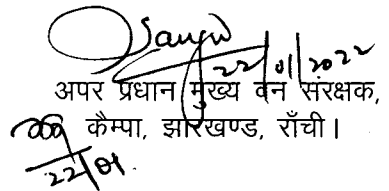 22/01/2022
अपर प्रधान मुख्य वन संरक्षक,
कैम्पा, झारखण्ड, राँची।
22/01